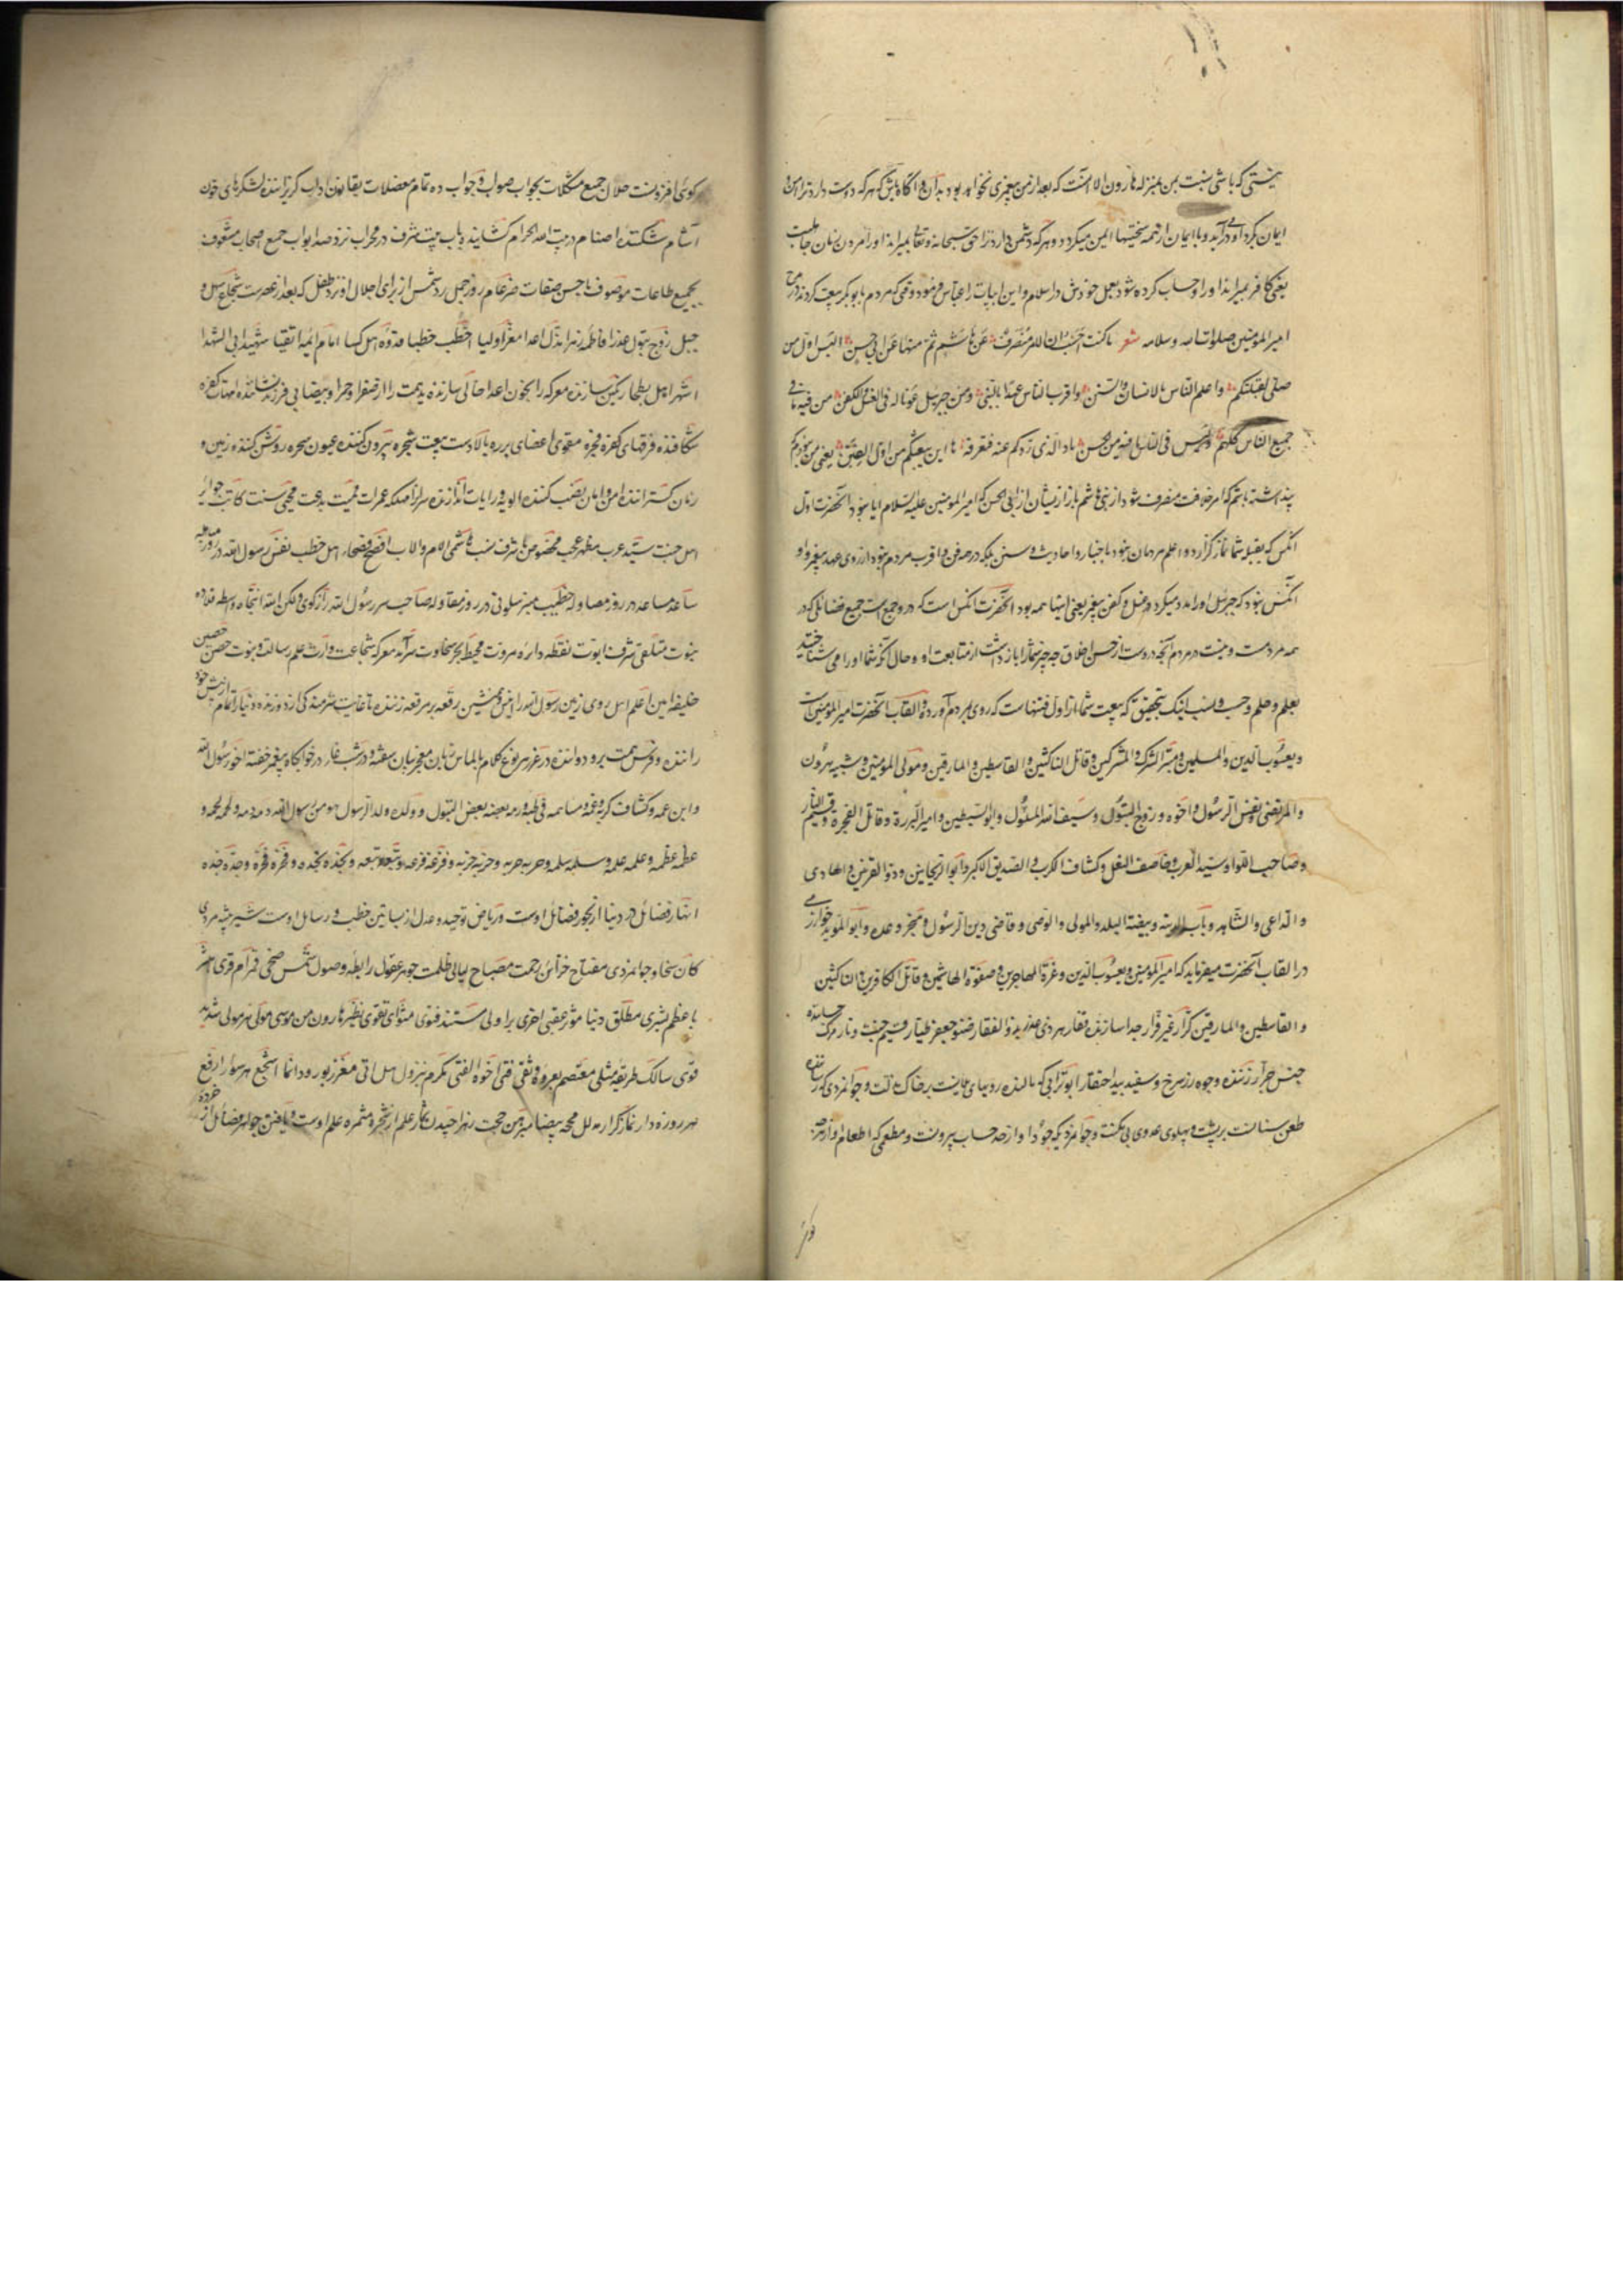 نیستی که باشی نسبت بمن بمنزله هارون الا آنست که بعد از من پیغمبری نخواهد بود بدان و آگاه باش که هر که دوست دارد ترا امن و
ایمان گرد او درآید و با ایمان از همه سختیها ایمن میگردد و هر که دشمن دارد ترا حق سبحانه و تعالی بمیراند او را مردن زمان جاهلیت
یعنی کافر بمیراند او را و حساب کرده شود بعمل خودش در اسلام و این ابیات را عباس فرمود وقتی که مردم با ابوبکر بیعت کردند در مدح
امیر المومنین صلوات الله وسلامه شعر ما کنت احسب ان الامر منصرف عن هاشم ثم منها عن ابی حسن الیس اول من
صلی لقبلتکم و اعلم الناس بالاثار والسنن واقرب الناس عهدا بالنبی ومن جبریل عونا له فی الغسل والکفن من فیه ما فی
جمیع الناس کلهم ولیس فی الناس ما فیه من حسن ماذا الذی ردکم عنه فنعرفه ها ان بیعتکم من اول الفتن یعنی من نبودم که
پنداشته باشم که امر خلافت منصرف شود از بنی هاشم باز از میشان از ابی الحسن که امیر المومنین علیه السلام ایا نبود آنحضرت اول
آنکس که بقبله شما نماز گزارد و اعلم مردمان نبود باخبار و احادیث و سنن بلکه در همه فن و اقرب مردم نبود از روی عهد پیغمبر و او
آنکس نبود که جبرئیل او را مدد میکرد در غسل و کفن پیغمبر یعنی اینها همه بود آنحضرت آنکس است که در و جمع است جمیع فضائل که در
همه مردست و نیست در مردم آنچه دروست از حسن اخلاق چه چیز شما را باز داشت از متابعت او و حال آنکه شما او را می شناختید
بعلم و حلم و حسب و نسب اینک بتحقیق که بیعت شما از اول فتنهاست که روی بمردم آورده و القاب آنحضرت امیر المومنین است
و یعسوب الدین والمسلمین ومبیر الشرک والمشرکین وقاتل الناکثین والقاسطین والمارقین ومولی المومنین وشبیه هرون
والمرتضی ونفس الرسول واخوه وزوج البتول وسیف الله المسلول وابو السبطین وامیر البررة وقاتل الفجرة وقسیم النار
وصاحب اللوا وسید العرب وخاصف النعل وکشاف الکرب والصدیق الاکبر وابو الریحانتین وذو القرنین والهادی
والداعی والشاهد وباب المدینه وبیضة البلد والمولی والوصی وقاضی دین الرسول ومنجز وعده وابو الموید خوارزمی
در القاب آنحضرت میفرماید که امیر المومنین ویعسوب الدین وغرة المهاجرین وصفوة الهاشمین وقاتل الکافرین والناکثین
والقاسطین والمارقین کرار غیر فرار جدا سازنده فقار هر ذی ... بذو الفقار صنو جعفر طیار قسیم جنت ونار
... جرار زننده وجوه زر سرخ و سفید بید احتقار ابو ترابی که مالنده روبهای ... بر خاک مذلت و جوانمردی که رساننده
طعن سنانست بر پشت و پهلوی عدوی بی مکنت و جوانمردیکه جود او از حد حساب بیرونست و مطعمی که اطعام او از حد
کوئی افزونست حلال جمیع مشکلات بجواب صواب و جواب ده تمام معضلات بقانون اداب گریزاننده لشکرهای خون
آشام شکننده اصنام در بیت الله الحرام گشاینده باب بیت شرف در محراب نزد سد ابواب جمیع اصحاب مشعوف
بجمیع طاعات موصوف باحسن صفات ضرغام روز جمل رد شمس از برای اجلال او نزد طفل که بعد از عصرست شجاع سهل و
جبل زوج بتول عذرا فاطمه زهرا مذل اعدا معز اولیا اخطب خطبا قدوه اهل کسا امام ائمه اتقیا شهید ابی الشهدا
اشهر اهل بطحا رنگین سازنده معرکه را بخون اعدا خالی سازنده ید همت را از صفرا وحمرا وبیضا ... هامات کفره
شکافنده فرقهای کفره فجره مقوی اعضای برره بالادست بیعت شجره بیرون کننده عیون سحره روشن کننده زمین و
زمان گستراننده امن و امان نصب کننده الویه ورایات اندازنده سر از مهلکه غمرات ممیت بدعت محیی سنت کاتب جواز
اهل جنت سید عرب مظهر عجب مخصوص باشرف نسب هاشمی الام والاب افصح فصحاء اهل خطب نفس رسول الله در روز مباهله
ساعد مساعد در روز مصاوله خطیب منبر سلونی در روز مقاوله صاحب سر رسول الله راز گوی ولکن الله انتجاه واسطه قلاده
نبوت متلقی شرف ابوت نقطه دایره مروت محیط بحر سخاوت سرآمد معرکه شجاعت وارث علم رسالت و نبوت حصن حصین
خلیفه امین اعلم اهل روی زمین رسول الله را انیس و همنشین رقعه بر مرقعه زننده تا غایت شرمندگی از دوزنده دنیا را تمام از پیش خود
راننده و فرس همت بر و دواننده درغرر بنوع کلام بالماس زبان معجز بیان سفته و در شب غار در خوابگاه پیغمبر خفته اخو رسول الله
وابن عمه وکشاف کربه وغمه ومساهمه فی طمه ورمه بعضه بعض البتول وولده ولد الرسول هو من رسول الله دمه دمه ولحمه لحمه و
عظمه عظمه وعلمه علمه وسلمه سلمه وحربه حربه وحزبه حزبه وفرعه فرعه ونبعه نبعه ونجده نجده وفخره فخره وجده جده
انهار فضائل در دنیا از بحور فضائل اوست وریاض توحید وعدل از بساتین خطب ورسائل اوست شیر بیشه مردی
کان سخا وجوانمردی مفتاح خزائن رحمت مصباح لیالی ظلمت جوهر عقول رابطه وصول شمس ضحی قمر ام قری
باعظم بشری مطلق دنیا موثر عقبی احری براولی مستند فتوی مثوای تقوی نظیر هارون من موسی مولی هر مولی شدید
قوی سالک طریقه مثلی معتصم بعروه وثقی فتی اخوه الفتی مکرم بنزول هل اتی معزز بورود انما اشجع هر سوار ارفع
هر روزه دار نماز گزار ... محجه بیضا مبرهن حجت زهرا چیدن ثمار علم از شجره مثمره علم اوست ویافتن جواهر فضائل از